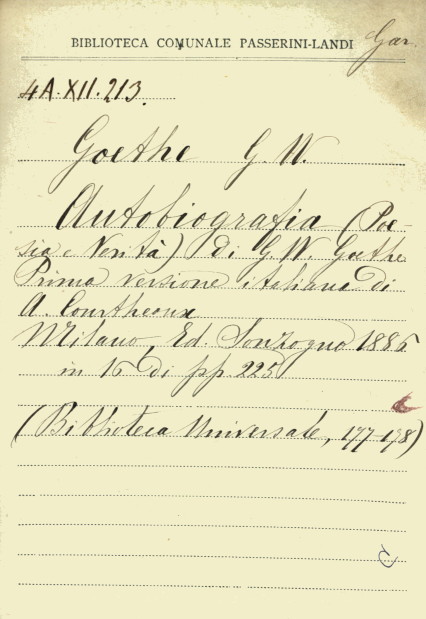 BIBLIOTECA COMUNALE PASSERINI-LANDI
Gar.
4A.XII.213.
Goethe G. W.
Autobiografia (Poe-
sia e Verità) di G. W. Goethe
Prima versione italiana di
A. Courtheoux
Milano, Ed. Sonzogno 1886
in 16 di pp. 225
(Biblioteca Universale, 177-178)
C